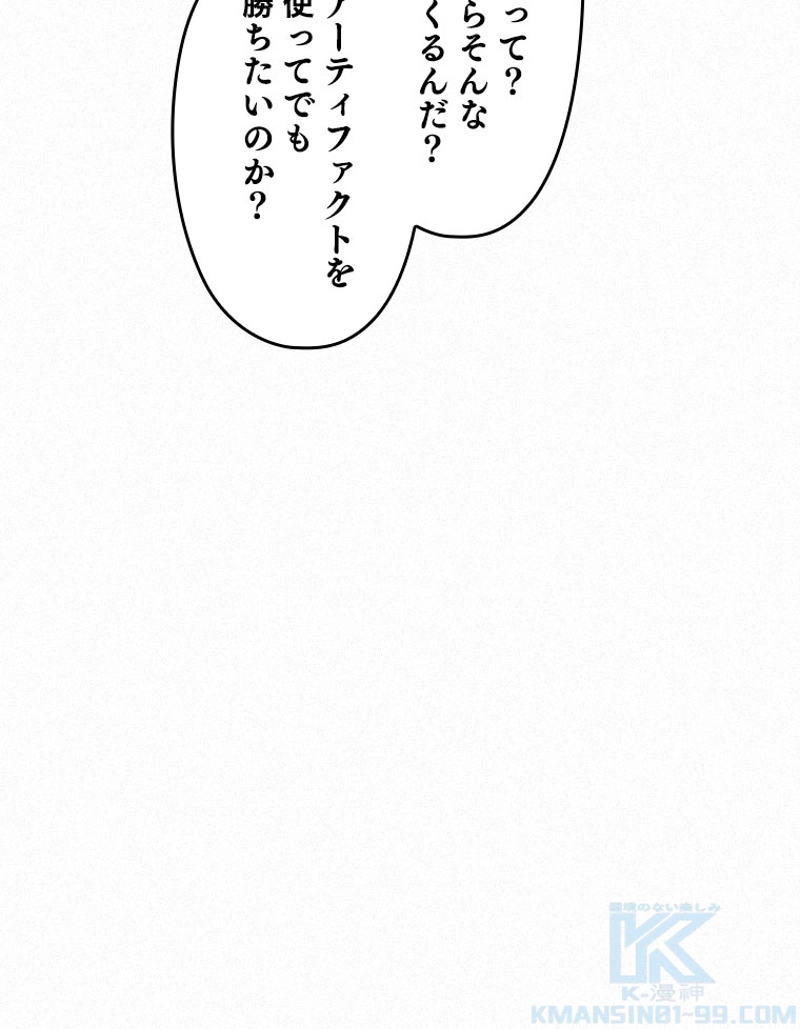 って？
らそんな
くるんだ？
アーティファクトを
使ってでも
勝ちたいのか？
限境のない楽しみ
K-漫神
KMANSIN01-99.COM